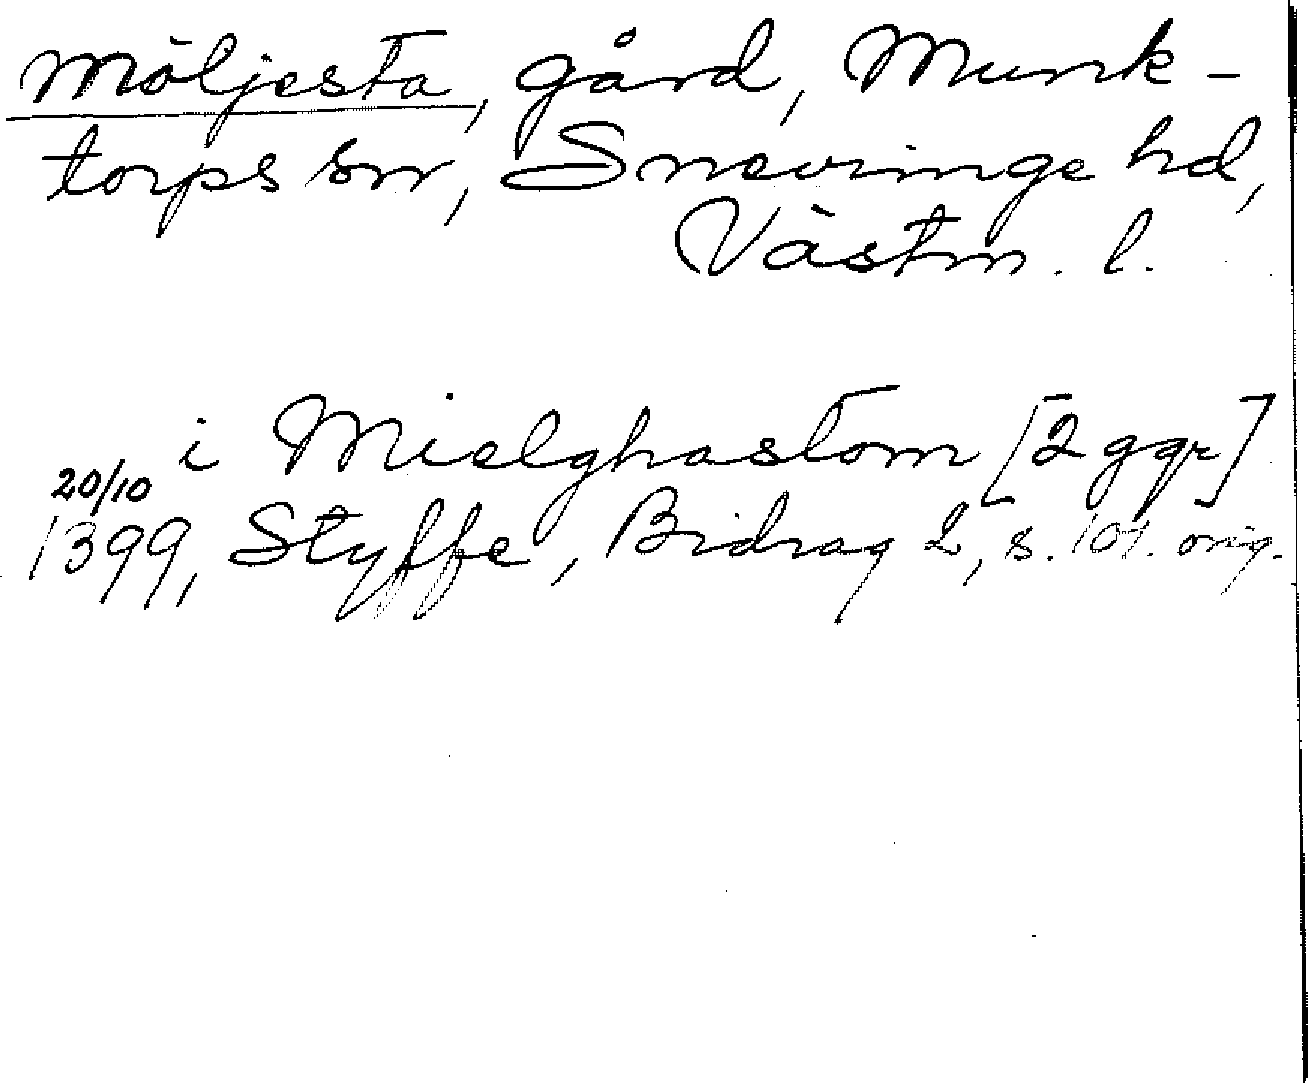 Möljesta, gård, Munk-
torps sn, Snevringe hd,
Västm. l.
i Mielghastom [2 ggr]
20/10
1399, Styffe, Bidrag 2, s. orig.